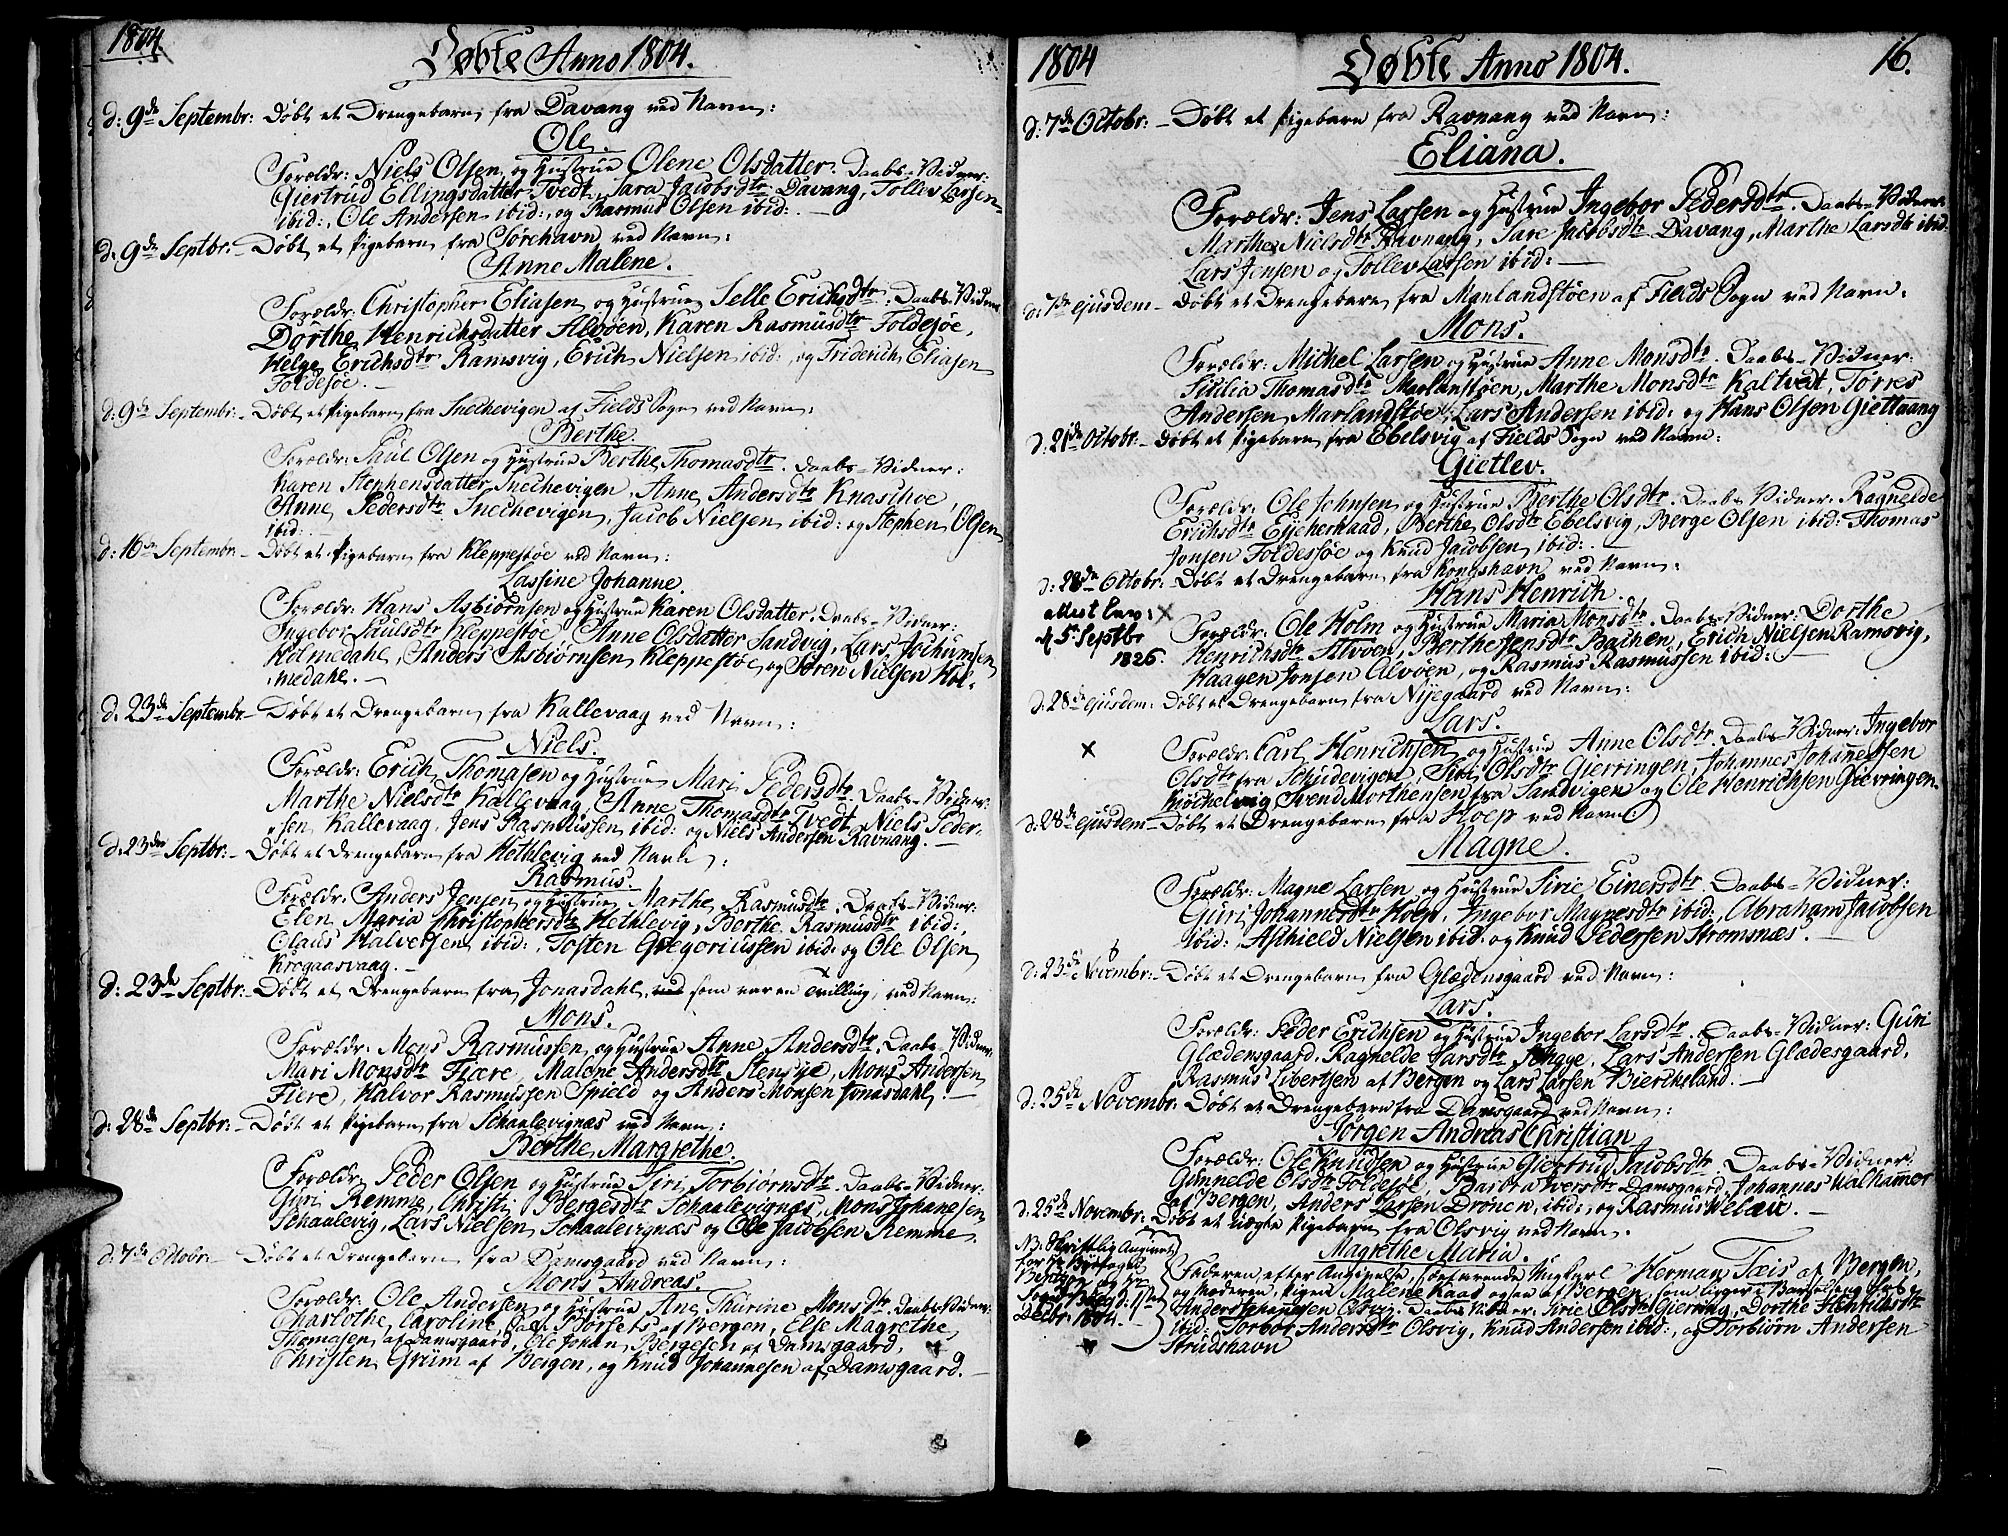 1804.
Døbte Anno 1804.
d: 9de Septembr: Døbt et Drengebarn fra Davang ved Navn:
Ole.
Forældr: Niels Olsen og Hustrue Olene Olsdatter. Daabs-Vidner:
Giertrud Ellingsdatter Tvedt, Sara Jacobsdtr Davang, Tollev Larsen
ibid:, Ole Andersen ibid:, og Rasmus Olsen ibid: . —
d: 9de Septbr: – Døbt et Pigebarn fra Sørehavn ved Navn:
Anne Malene.
Forældr: Christopher Eliasen og Hustrue Selle Erichsdtr. Daabs-Vidner
Dorthe Henrichsdatter Alvøen, Karen Rasmusdtr Foldesøe,
Helge Erichsdtr Ramsvig, Erich Nielsen ibid: og Friderich Eliasen
Foldesøe. —
d: 9de Septembr: – Døbt et Pigebarn fra Snechevigen af Fields Sogn ved Navn:
Berthe.
Forældr: Poul Olsen og Hustrue Berthe Thomasdtr. Daabs-Vidner:
Karen Stephensdatter Snechevigen, Anne Andersdtr Knaschoe,
Anne Pedersdtr Snechevigen, Jacob Nielsen ibid: og Stephen Olsen
ibid: . —
d: 16de Septembr: – Døbt et Pigebarn fra Kleppestøe ved Navn:
Lassine Johanne.
Forældr: Hans Asbiørnsen og Hustrue Karen Olsdatter. Daabs-Vidner:
Ingebor Paulsdtr Kleppestøe, Anne Olsdatter Sandvig, Lars Jochumsen
Holmedahl, Anders Asbiørnsen Kleppestøe og Søren Nielsen Hol-
medahl. —
d: 23de Septembr – Døbt et Drengebarn fra Kallevaag ved Navn:
Niels.
Forældr: Erich Thomasen og Hustrue Mari Pedersdtr Daabs-Vidner:
Marthe Nielsdtr Kallevaag, Anne Thomasdtr Tvedt, Niels Peder-
sen Kallevaag, Jens Rasmussen ibid: og Niels Andersen Ravnang. —
d: 23de Septbr: – Døbt et Drengebarn fra Hethlevig ved Navn:
Rasmus.
Forældr: Anders Jensen og Hustrue Marthe Rasmusdtr. Daabs-Vidner:
Elen Maria Christophersdtr Hethlevig, Berthe Rasmusdtr ibid:,
Claus Halversen ibid:, Tosten Gregoriussen ibid: og Ole Olsen
Krogaasvaag. —
d: 23de Septbr: – Døbt et Drengebarn fra Jonasdahl, ved som var en Tvilling, ved Navn:
Mons.
Forældr: Mons Rasmussen og Hustrue Anne Andersdtr. Daabs-Vidner:
Mari Monsdtr Fiære, Malene Andersdtr Stensye, Mons Andersen
Fiere, Halvor Rasmussen Spield og Anders Monsen Jonasdahl. —
d: 28de Septbr: – Døbt et Pigebarn fra Schaalevignæs ved Navn:
Berthe Margrethe.
Forældr: Peder Olsen og Hustrue Siri Torbiørnsdtr. Daabs-Vidner:
Guri Remme, Christi Bergesdtr Schaalevignæs, Mons Johanesen
Schaalevig, Lars Nielsen Schaalevignæs og Ole Jacobsen Remme.
d: 7de Octobr: – Døbt et Drengebarn fra Damsgaard ved Navn:
Mons Andreas.
Forældr: Ole Andersen og Hustrue Ane Thurine Monsdtr. Daabs-Vidner:
Charlothe Caroline von Borsets af Bergen, Else Magrethe
Thomasen af Damsgaard, Ole Johan Bergesen af Damsgaard,
Christen Grüm af Bergen, og Knud Johannesen af Damsgaard. —
1804
Døbte Anno 1804.
16.
d: 7de Octobr: – Døbt et Pigebarn fra Ravnang ved Navn:
Eliana.
Forældr: Jens Larsen og Hustrue Ingebor Pedersdtr. Daabs-Vidner:
Marthe Nielsdtr Ravnang, Sare Jacobsdtr Davang, Marthe Larsdtr ibid:
Lars Jensen og Tollev Larsen ibid: —
d: 7de ejusdem – Døbt et Drengebarn fra Marlandstøen af Fields Sogn ved Navn:
Mons.
Forældr: Michel Larsen og Hustrue Anne Monsdtr. Daabs-Vidner:
Sidilia Thomasdtr Marlanstøen, Marthe Monsdtr Kaltvedt, Torres
Andersen Marlandstøe, Lars Andersen ibid: og Hans Olsen Giettvang
d: 21de Octobr: – Døbt et Pigebarn fra Ebelsvig af Fields Sogn ved Navn:
Gietlev.
Forældr: Ole Johnsen og Hustrue Berthe Olsdtr. Daabs-Vidner: Ragnelde
Erichsdtr Eycherhaad, Berthe Olsdtr Ebelsvig, Berge Olsen ibid: Thomas
Jonsen Foldesøe og Knud Jacobsen ibid: . —
d: 28de Octobr: Døbt et Drengebarn fra Kongshavn ved Navn:
Hans Henrich.
attest lev: ×
d 5te Septbr
1826.
Forældr: Ole Holm og Hustrue Maria Monsdtr. Daabs-Vidner: Dorthe
Henrichsdtr Alvøen, Berthe Jensdtr Bachen, Erich Nielsen Ramsvig,
Haagen Jonsen Alvøen, og Rasmus Rasmussen ibid: —
d: 28de ejusdem: Døbt et Drengebarn fra Nyegaard ved Navn:
Lars.
×
Forældr: Carl Henrichsen og Hustrue Anne Olsdtr Daabs-Vidner: Ingebor
Olsdtr fra Schudevigen, Siri Olsdtr Gierringen, Johannes Johannessen
Kiøchelvig, Svend Morthensen fra Sandvigen og Ole Henrichsen Gierringen.
d: 28de ejusdem – Døbt et Drengebarn fra Hoep ved Navn:
Magne.
Forældr: Magne Larsen og Hustrue Sirie Einersdtr. Daabs-Vidner:
Guri Johannesdtr Hoep, Ingebor Magnesdtr ibid:, Abraham Jacobsen
ibid:, Aschield Nielsen ibid. og Knud Pedersen Stromsnæs. —
d: 23de Novembr: – Døbt et Drengebarn fra Glædensgaard ved Navn:
Lars.
Forældr: Peder Erichsen og Hustrue Ingebor Larsdtr. Daabs-Vidner: Guri
Glædensgaard, Ragnelde Larsdtr Schage, Lars Andersen Glædesgaard,
Rasmus Libertsen af Bergen og Lars Larsen Bierckeland. —
d: 25de Novembr: Døbt et Drengebarn fra Damsgaard ved Navn:
Jørgen Andreas Christian
Forældr: Ole Knudsen og Hustrue Giertrud Jacobsdtr. Daabs-Vidner:
Gunnelde Olsdtr Foldesøe, Barbra Iversdtr Damsgaard, Johannes Walhammer
af Bergen, Anders Larsen Dronen, ibid:, og Rasmus Welæit. —
d: 25de Novembr: Døbt et uægte Pigebarn fra Olsvig ved Navn:
Magrethe Maria.
NB: Skriftlig Angivet
for Hr Byefoged
Bentzon og Hr
d: 1ste
Decbr: 1804. —
Faderen, efter Angivelse, forfarende Ungkarl Herman Tæis af Bergen,
og Moderen, Pigen Malene Kaad ogsaa af Bergen, som ligger i Barselseng hos
Anders Johannesen Olsvig. Daabs-Vidner: Sirie Olsdtr Gierring, Dorthe Henrichsdtr
ibid: Torbor Andersdtr Olsvig, Knud Andersen ibid:, og Torbiørn Andersen
Strudshavn